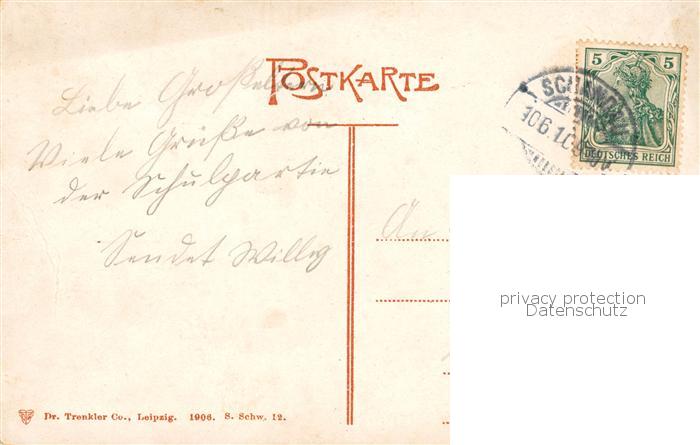 POSTKARTE
Liebe Großeltern
Viele Grüße von
der Schulpartie
Sendet Willy
An
5 5
DEUTSCHES REICH
SCHANDAU
10.6.10.
privacy protection
Datenschutz
Dr. Trenkler Co., Leipzig. 1906. S. Schw. 12.